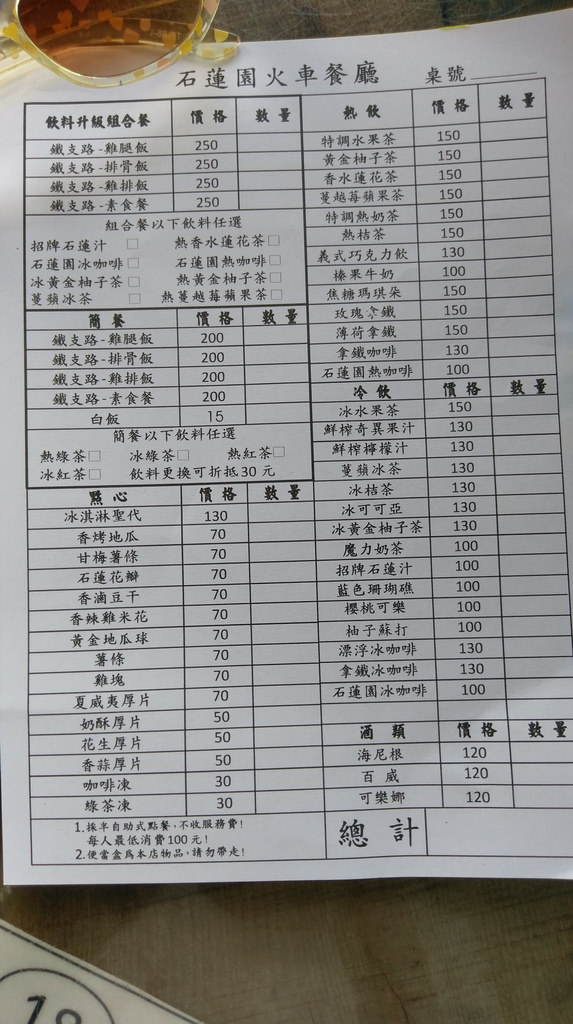 石蓮園火車餐廳 桌號
飲料升級組合餐 價格 數量
鐵支路-雞腿飯 250
鐵支路-排骨飯 250
鐵支路-雞排飯 250
鐵支路-素食餐 250
組合餐以下飲料任選
招牌石蓮汁□ 熱香水蓮花茶□
石蓮園冰咖啡□ 石蓮園熱咖啡□
冰黃金柚子茶□ 熱黃金柚子茶□
蔓蘋冰茶□ 熱蔓越莓蘋果茶□
簡餐 價格 數量
鐵支路-雞腿飯 200
鐵支路-排骨飯 200
鐵支路-雞排飯 200
鐵支路-素食餐 200
白飯 15
簡餐以下飲料任選
熱綠茶□ 冰綠茶□ 熱紅茶□
冰紅茶□ 飲料更換可折抵30元
點心 價格 數量
冰淇淋聖代 130
香烤地瓜 70
甘梅薯條 70
石蓮花瓣 70
香滷豆干 70
香辣雞米花 70
黃金地瓜球 70
薯條 70
雞塊 70
夏威夷厚片 70
奶酥厚片 50
花生厚片 50
香蒜厚片 50
咖啡凍 30
綠茶凍 30
1.採半自助式點餐,不收服務費!
每人最低消費100元!
2.便當盒為本店物品,請勿帶走!
熱飲 價格 數量
特調水果茶 150
黃金柚子茶 150
香水蓮花茶 150
蔓越莓蘋果茶 150
特調熱奶茶 150
熱桔茶 150
義式巧克力飲 130
榛果牛奶 100
焦糖瑪琪朵 150
玫瑰拿鐵 150
薄荷拿鐵 150
拿鐵咖啡 130
石蓮園熱咖啡 100
冷飲 價格 數量
冰水果茶 150
鮮榨奇異果汁 130
鮮榨檸檬汁 130
蔓蘋冰茶 130
冰桔茶 130
冰可可亞 130
冰黃金柚子茶 130
魔力奶茶 100
招牌石蓮汁 100
藍色珊瑚礁 100
櫻桃可樂 100
柚子蘇打 100
漂浮冰咖啡 130
拿鐵冰咖啡 130
石蓮園冰咖啡 100
酒類 價格 數量
海尼根 120
百威 120
可樂娜 120
總計